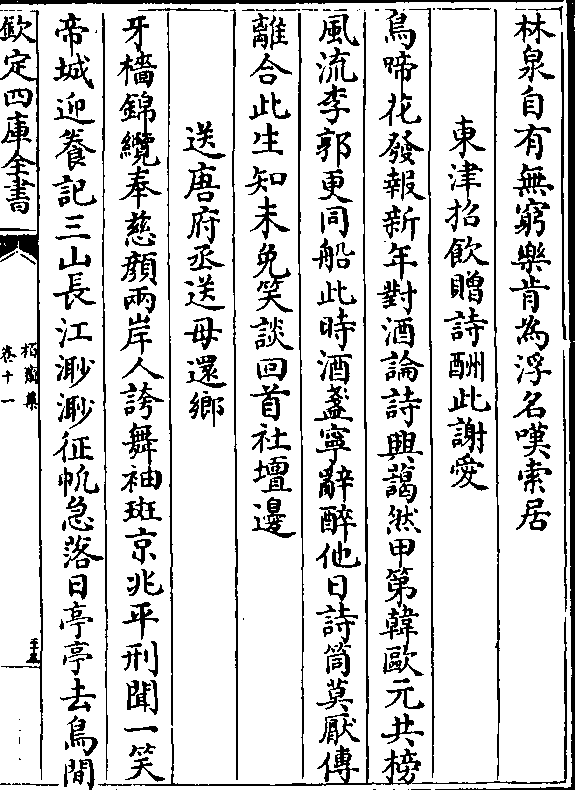 林泉自有無窮樂肯為浮名嘆索居
東津招飲贈詩酬此謝愛
鳥啼花發報新年對酒論詩興藹然甲第韓歐元共榜
風流李郭更同船此時酒盞寧辭醉他日詩筒莫厭傳
離合此生知未免笑談回首社壇邊
送唐府丞送母還鄉
牙檣錦纜奉慈顔兩岸人誇舞袖斑京兆平刑聞一笑
帝城迎養記三山長江渺渺征帆急落日亭亭去鳥閒
欽定四庫全書
卷十一